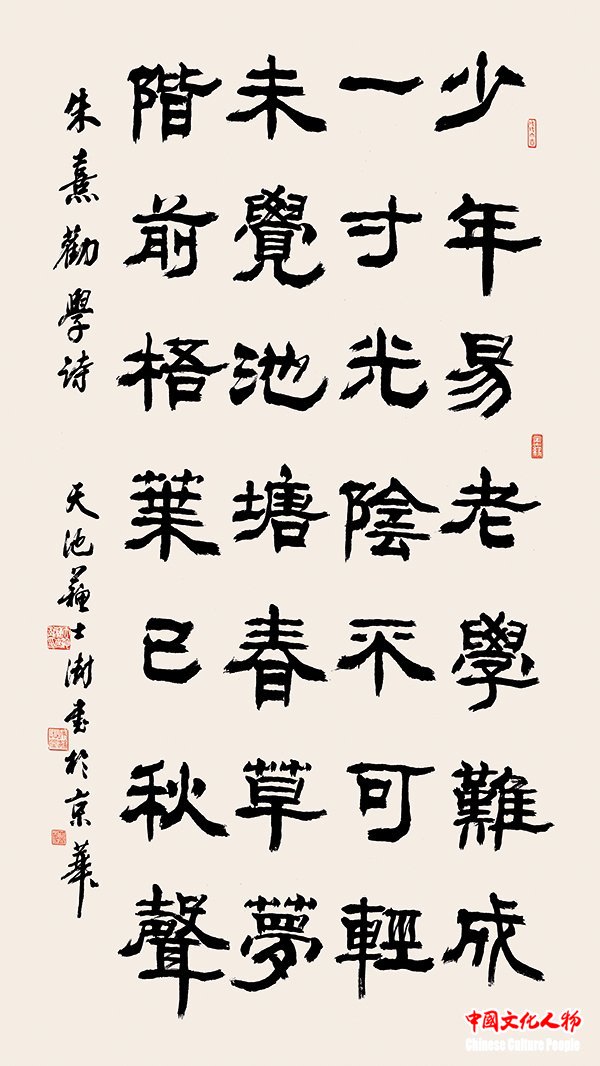 少年易老學難成
一寸光陰不可輕
未覺池塘春草夢
階前梧葉已秋聲
朱熹勸學詩 天池蘇士澍書於京華
中國文化人物
Chinese Culture People